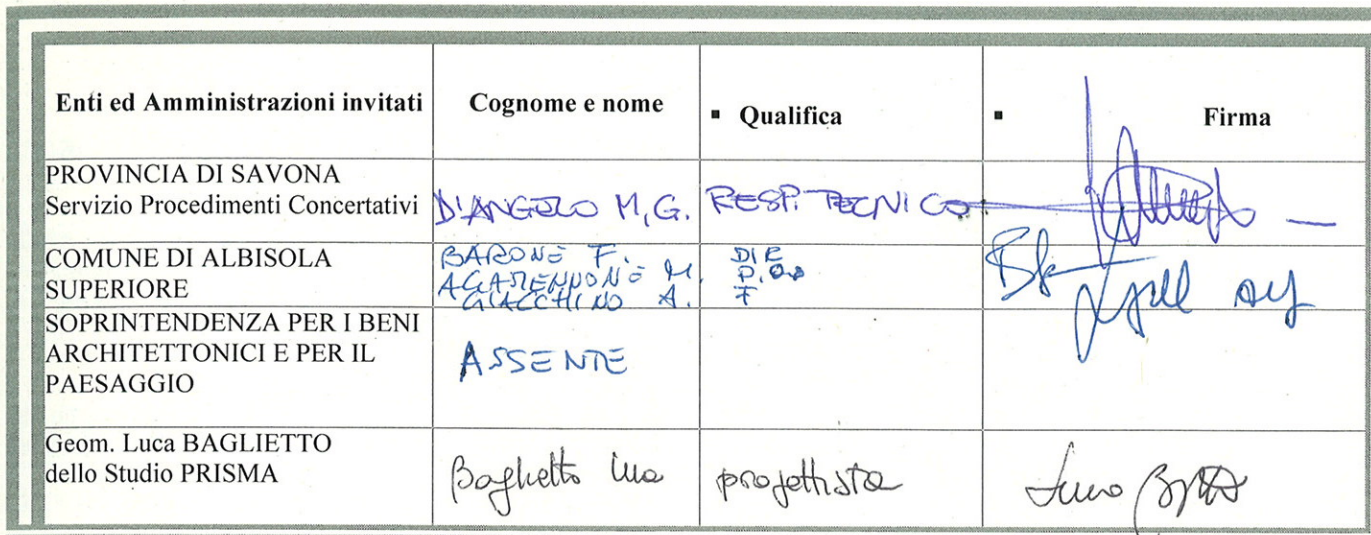 Enti ed Amministrazioni invitati Cognome e nome ▪ Qualifica ▪ Firma
PROVINCIA DI SAVONA
Servizio Procedimenti Concertativi D'ANGELO M.G. RESP. TECNICO
COMUNE DI ALBISOLA
SUPERIORE
BARONE F. DIR
AGAMENNONE M. P.O.
GIACCHINO A. F
SOPRINTENDENZA PER I BENI
ARCHITETTONICI E PER IL
PAESAGGIO
ASSENTE
Geom. Luca BAGLIETTO
dello Studio PRISMA
Baglietto Luca progettista